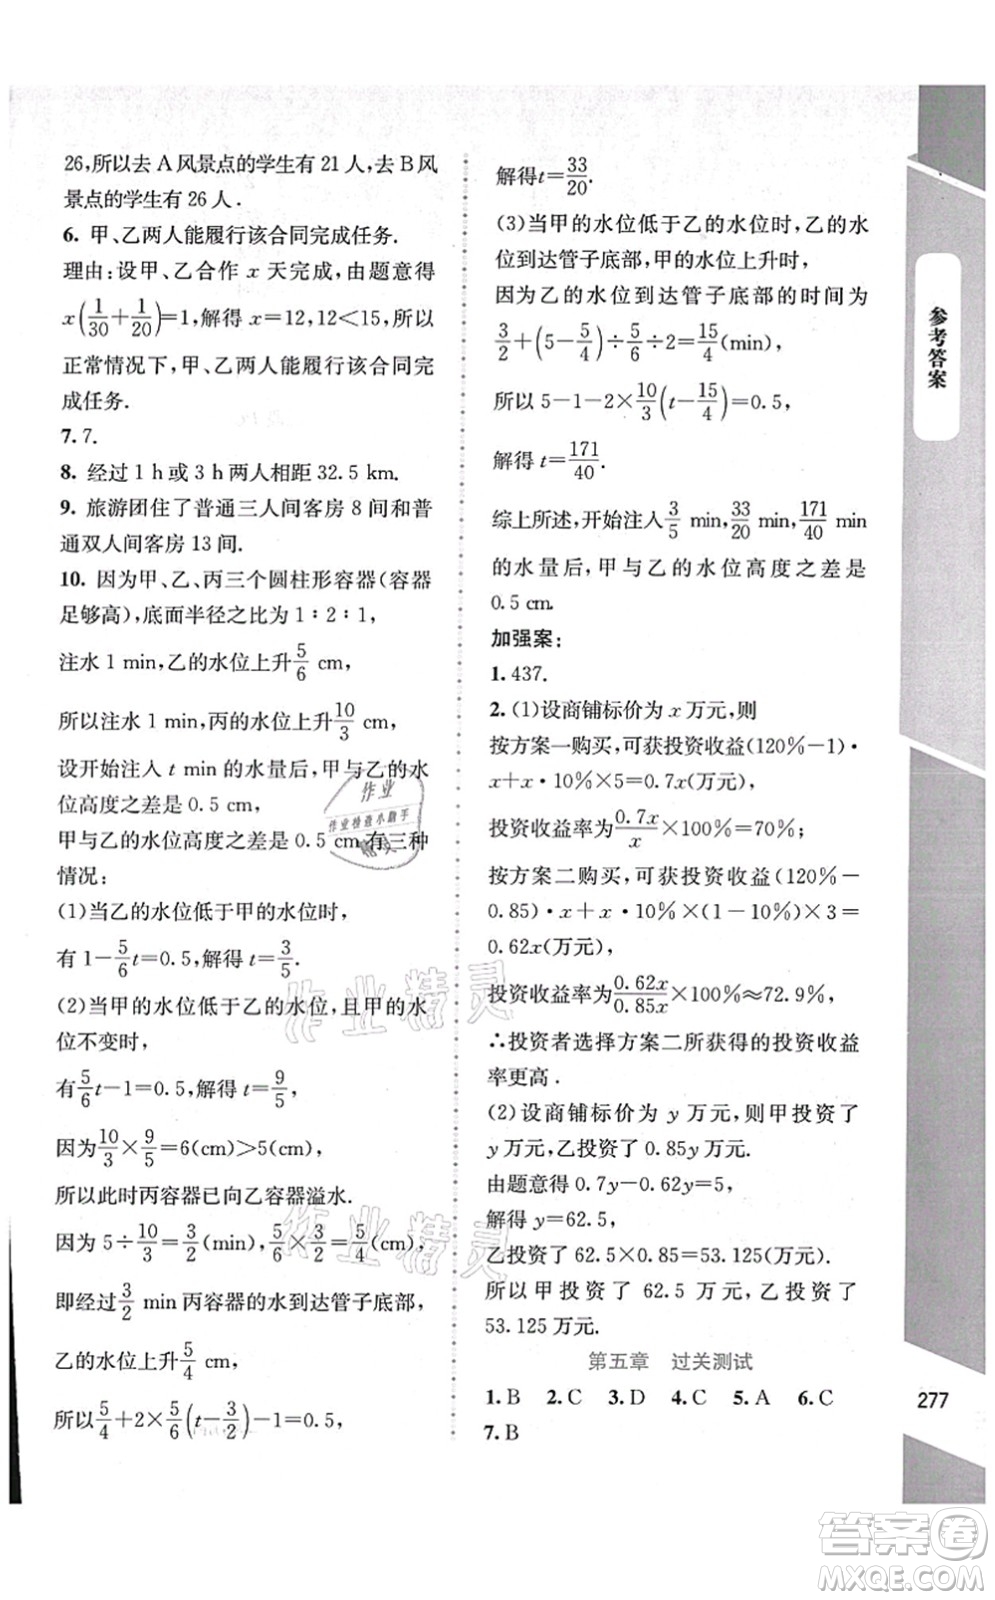 26,所以去 A 风景点的学生有 21 人,去 B 风
景点的学生有 26 人.
6. 甲、乙两人能履行该合同完成任务.
理由:设甲、乙合作 x 天完成,由题意得
x(1/30+1/20)=1,解得 x=12,12<15,所以
正常情况下,甲、乙两人能履行该合同完
成任务.
7. 7.
8. 经过 1 h 或 3 h 两人相距 32.5 km.
9. 旅游团住了普通三人间客房 8 间和普
通双人间客房 13 间.
10. 因为甲、乙、丙三个圆柱形容器(容器
足够高),底面半径之比为 1∶2∶1,
注水 1 min,乙的水位上升 5/6 cm,
所以注水 1 min,丙的水位上升 10/3 cm,
设开始注入 t min 的水量后,甲与乙的水
位高度之差是 0.5 cm,
甲与乙的水位高度之差是 0.5 cm 有三种
情况:
(1)当乙的水位低于甲的水位时,
有 1-5/6t=0.5,解得 t=3/5.
(2)当甲的水位低于乙的水位,且甲的水
位不变时,
有 5/6t-1=0.5,解得 t=9/5,
因为 10/3×9/5=6(cm)>5(cm),
所以此时丙容器已向乙容器溢水.
因为 5÷10/3=3/2(min),5/6×3/2=5/4(cm),
即经过 3/2 min 丙容器的水到达管子底部,
乙的水位上升 5/4 cm,
所以 5/4+2×5/6(t-3/2)-1=0.5,
解得 t=33/20.
(3)当甲的水位低于乙的水位时,乙的水
位到达管子底部,甲的水位上升时,
因为乙的水位到达管子底部的时间为
3/2+(5-5/4)÷5/6÷2=15/4(min),
所以 5-1-2×10/3(t-15/4)=0.5,
解得 t=171/40.
综上所述,开始注入 3/5 min,33/20 min,171/40 min
的水量后,甲与乙的水位高度之差是
0.5 cm.
加强案:
1. 437.
2. (1)设商铺标价为 x 万元,则
按方案一购买,可获投资收益(120%-1)·
x+x·10%×5=0.7x(万元),
投资收益率为 0.7x/x×100%=70%;
按方案二购买,可获投资收益(120%-
0.85)·x+x·10%×(1-10%)×3=
0.62x(万元),
投资收益率为 0.62x/0.85x×100%≈72.9%,
∴投资者选择方案二所获得的投资收益
率更高.
(2)设商铺标价为 y 万元,则甲投资了
y 万元,乙投资了 0.85y 万元.
由题意得 0.7y-0.62y=5,
解得 y=62.5,
乙投资了 62.5×0.85=53.125(万元).
所以甲投资了 62.5 万元,乙投资了
53.125 万元.
第五章 过关测试
1. B 2. C 3. D 4. C 5. A 6. C
7. B
参考答案
277
作业
作业检查小助手
精灵
作业精灵
作业精灵
答案卷
MXQE.COM